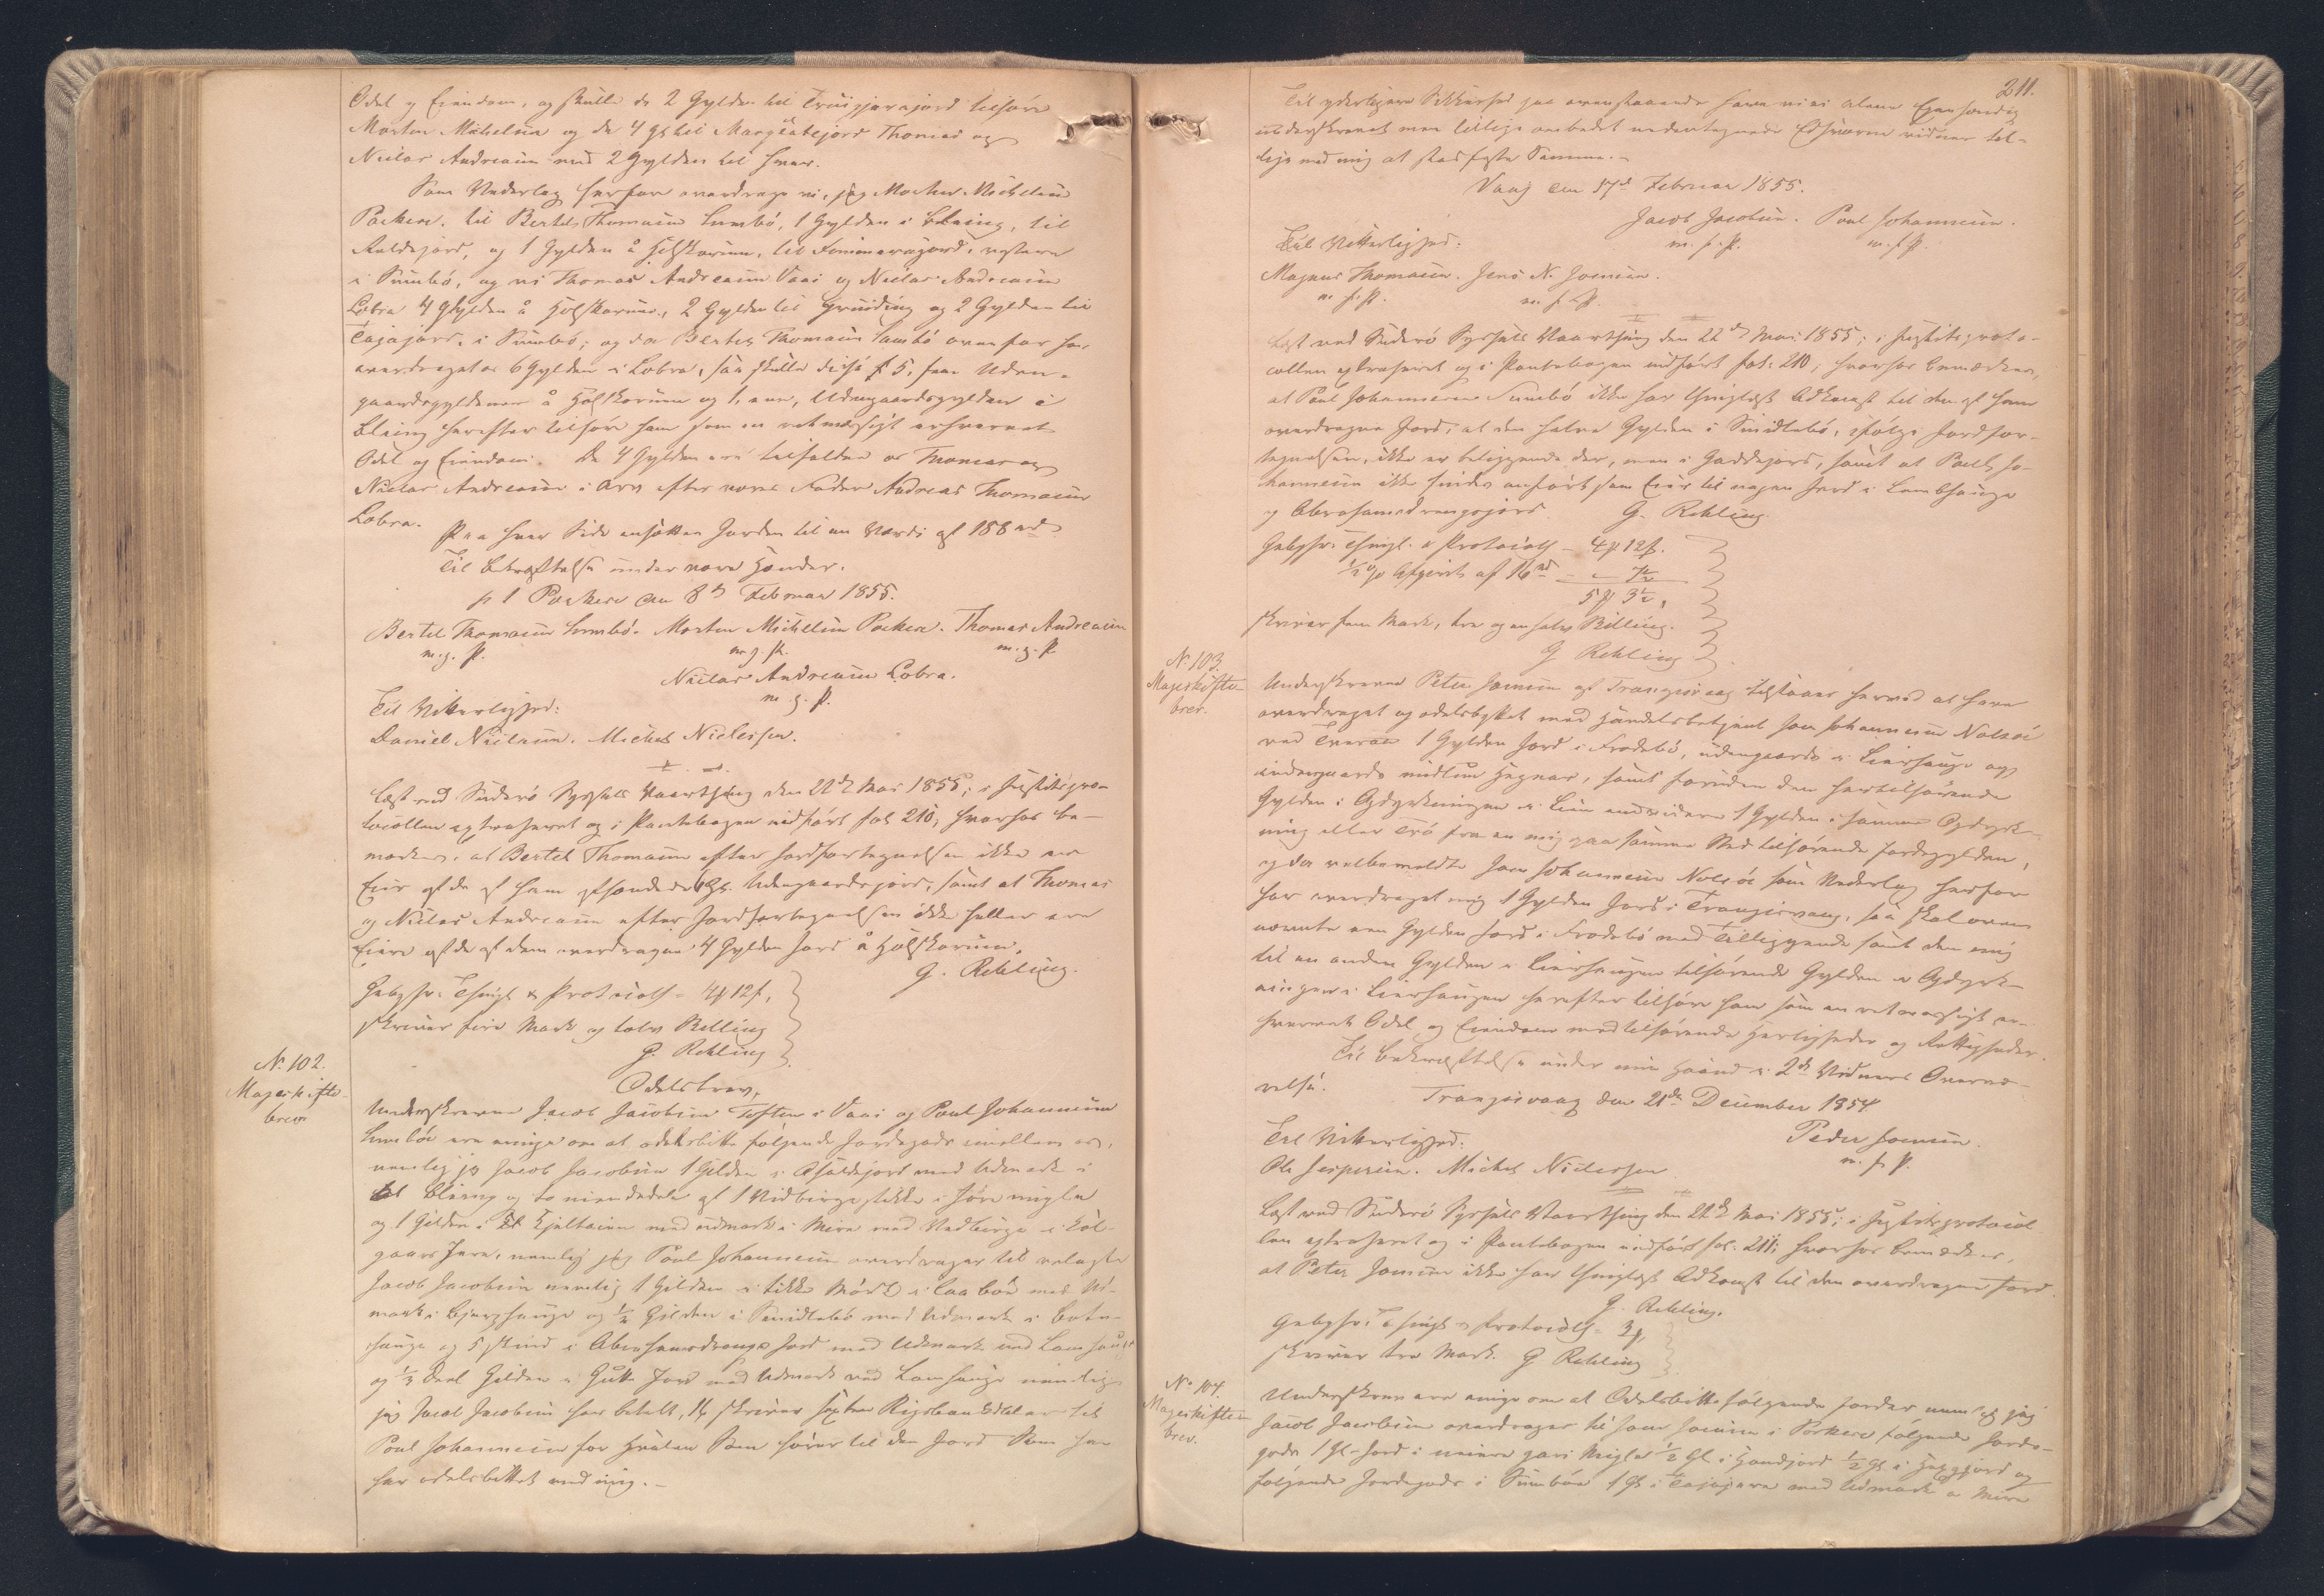 Odel og Eiendom, og skulle de 2 Gylden til Truisgjarajord tilhøre
Morten Michelsen og de 4 Gl til Margretejord Thomas og
Niclas Andreasen med 2 Gylden til hver.
Som Vederlag herfor overdrage vi, jeg Morten Michelsen
Porkere, til Bertel Thomasen Sumbö, 1 Gylden i Blaing, til
Auldejord, og 1 Gylden å Hólskorum, til vestere
i Sumbö, og vi Thomas Andreasen Vaai og Niclas Andreasen
Lobra 4 Gylden å Hólskorum, 2 Gylden til og 2 Gylden til
Tajajord, i Sumbö; og da Bertel Thomasen Sumbö ovenfor har
overdraget os 6 Gylden i Lobra, saa skulle disse 5, fem Uden-
gaardsgyldener å Hólskorum og 1, een, Udengaardsgylden i
Blaing herefter tilhøre ham som en retmæssigt erhvervet
Odel og Eiendom. De 4 Gylden ere tilfaldne os Thomas og
Niclas Andreasen i Arv efter vores Fader Andreas Thomasen
Lobra.
Paa hver Side ansættes Jorden til en Værdi af 188 rd
Til Bekræftelse under vore Hænder.
p t Porkere den 8de Februar 1855.
Bertel Thomasen Sumbö. Morten Michelsen Porkere. Thomas Andreasen
m. g. P. m. g. P. m. g. P.
Niclas Andreasen Lobra.
m. g. P.
Til Vitterlighed:
Daniel Niclasen. Michel Niclessen.
Læst ved Suderö Syssels Vaarthing den 22de Mai 1855; i Justitspro-
tocollen extraheret og i Pantebogen indført fol 210; hvorhos be-
mærkes, at Bertel Thomasen efter Jordfortegnelsen ikke er
Eier af de af ham afhændede 6 Gl. Udengaardsjord, samt at Thomas
og Niclas Andreasen efter Jordfortegnelsen ikke heller ere
Eiere af de af dem overdragne 4 Gylden Jord å Hólskorum.
G. Rehling.
Gebyhr: Thingl. & Protocoll = 4 12 ,
skriver fire Mark og tolv Skilling
G. Rehling
N. 102.
Mageskifte-
brev
Odelsbrev,
Underskrevne Jacob Jacobsen Toften i Vaai og Poul Johannesen
Sumböe ere enige om at odelsbitte følgende Jordegods imellem os,
nemlig jeg Jacob Jacobsen 1 Gilden i med Udmark i
Blaing og to niendedele af 1
og 1 Gilden i med udmark i Mira med
nemlig jeg Poul Johannesen overdrager til velagte
Jacob Jacobsen nemlig 1 Gilden i med Ud-
mark i Bjarghauge og ½ Gilden i Smidlebö med Udmark i
hauge og 5 Skind i Abrahamsdrengs Jord med Udmark ved Lamhauge
og ⅓ Deel Gilden i Gutte Jord med Udmark ved Lamhauge
jeg Jacob Jacobsen har betalt, 16 skriver sexten Rigsbankdaler til
Poul Johannesen for som hører til den Jord som han
har odelsbittet med mig.
211.
Til yderligere Sikkerhed paa ovenstaaende have vi ei alene Egenhændig
underskrevet men tillige anbedet undertegnede Edsvorne vidner til-
lige med mig at stadfæste Samme.
Vaag den 17de Februar 1855.
Jacob Jacobsen. Poul Johannesen.
m. f. P. m. f. P.
Til Vitterlighed:
Magnus Thomasen. Jens N. Joensen.
m. f. P. m. f. P.
Læst ved Suderö Syssels Vaarthing den 22de Mai 1855; i Justitsproto-
collen extraheret og i Pantebogen indført fol: 210; hvorhos bemærkes,
at Poul Johannesen Sumbö ikke har thinglæst Adkomst til den af ham
overdragne Jord, at den halve Gylden i Smidlebö, ifølge Jordfor-
tegnelsen, ikke er beliggende der, men i Gaddejord, samt at Poul Jo-
hannesen ikke findes anført som Eier til nogen Jord i Lambhauge
og Abrahamsdrengsjord G. Rehling.
Gebyhr: Thingl. & Protocoll - 4 12 .
½ % Afgivt af 16 rd - 7½
5 3½
skriver fem Mark, tre og en halv Skilling.
G Rehling
N. 103.
Mageskifte-
brev.
Underskrevne Peter Joensen af Trangisvaag tilstaaer herved at have
overdraget og odelsbyttet med Handelsbetjent Joen Johannesen Nolsöe
ved Tveraa 1 Gylden Jord i Frodebö, udengaards i Leirhauge og
indengaards mellem Hegnar, samt foruden den hertilhørende
Gylden i Opdyrkningen i Leir endvidere 1 Gylden i samme Opdyrk-
ning eller Trö fra en mig paa samme Sted tilhørende Jordegylden,
og da velbemeldte Joen Johannesen Nolsöe som Vederlag herfor
har overdraget mig 1 Gylden Jord i Trangisvaag, saa skal oven-
nævnte een Gylden Jord i Frodebö med Tilliggende samt den mig
til en anden Gylden i Leirhaugen tilhørende Gylden i Opdyrk-
ningen i Leirhaugen herefter tilhøre ham som en retmæssigt er-
hvervet Odel og Eiendom med tilhørende Herligheder og Rettigheder.
Til Bekræftelse under min Haand i 2de Vidners Overvæ-
relse.
Trangisvaag den 21de December 1854.
Peder Joensen.
m. f. P.
Til Vitterlighed:
Ole Jespersen. Michel Niclessen
Læst ved Suderö Syssels Vaarthing den 22de Mai 1855; i Justitsprotocol
len extraheret og i Pantebogen indført fol. 211; hvorhos bemærkes,
at Peter Joensen ikke har thinglæst Adkomst til den overdragne Jord.
G. Rehling.
Gebyhr: Thingl. & Protocoll = 3 ,
skriver tre Mark. G Rehling
No 104.
Mageskifte-
brev.
Underskrevne ere enige om at Odelsbitte følgende Jorder nemlig jeg
Jacob Jacobsen overdrager til Joen Joensen i Porkere følgende Jorde-
gods 1 Gl. Jord i ½ Gl. i Handjord ½ Gl. i og
følgende Jordegods i Sumböe 1 Gl. i med Udmark a Mira